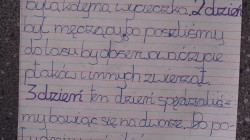 była kolejna wycieczka. 2 dzień
był męczący bo poszliśmy
do lasu by obserwować życie
ptaków i innych zwierząt.
3 dzień ten dzień spędziliś-
my bawiąc się na dworze. Po po-